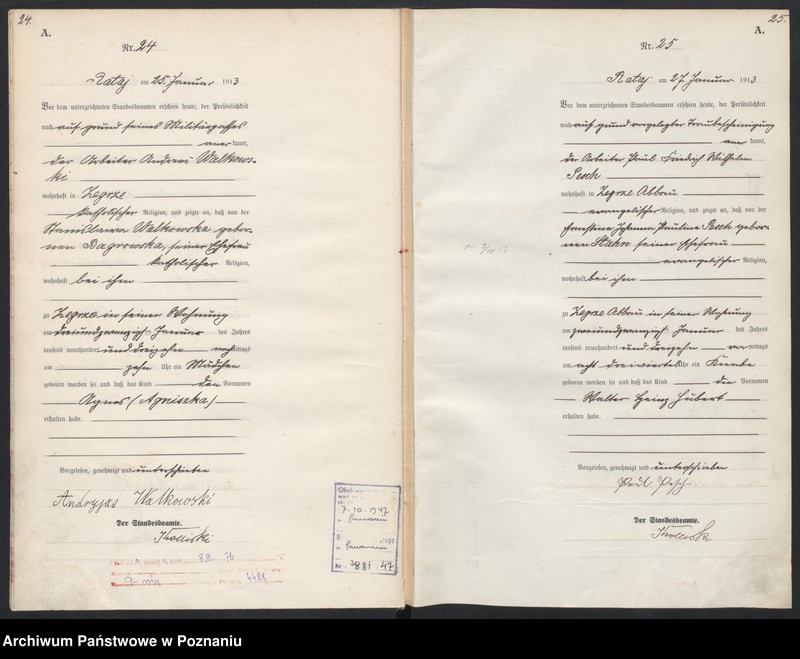 24.
A.
Nr. 24
Rataj am 25. Januar 1913
Vor dem unterzeichneten Standesbeamten erschien heute, der Persönlichkeit
nach auf grund seines Militärpasses
aner kannt,
der Arbeiter Andreas Walkows-
ki
wohnhaft in Zegrze
katholischer Religion, und zeigte an, daß von der
Stanislawa Walkowska gebor-
nen Bagrowska, seiner Ehefrau
katholischer Religion,
wohnhaft bei ihm
zu Zegrze in seiner Wohnung
am dreiundzwanzigst Januar des Jahres
tausend neunhundert und dreizehn mittags
um zehn Uhr ein Mädchen
geboren worden sei und daß das Kind den Vornamen
Agnes (Agniszka)
erhalten habe.
Vorgelesen, genehmigt und unterschrieben
Andryjas Walkowski
Der Standesbeamte.
7.10.1947
Nr. 881 47
8.9. 76
4488
25.
A.
Nr. 25
Rataj am 27. Januar 1913
Vor dem unterzeichneten Standesbeamten erschien heute, der Persönlichkeit
nach auf grund vorgelegter Traubescheinigung
aner kannt,
der Arbeiter Paul Friedrich Wilhelm
Pesch
wohnhaft in Zegrze Abbau
evangelischer Religion, und zeigte an, daß von der
Ernestine Johanna Pauline Pesch gebor-
nen Hahn seiner Ehefrau
evangelischer Religion,
wohnhaft bei ihm
zu Zegrze Abbau in seiner Wohnung
am zweiundzwanzigst Januar des Jahres
tausend neunhundert und dreizehn vor mittags
um acht dreiviertel Uhr ein Knabe
geboren worden sei und daß das Kind die Vornamen
Walter Heinz Hubert
erhalten habe.
Vorgelesen, genehmigt und unterschrieben
Paul Pesch
Der Standesbeamte.
Archiwum Państwowe w Poznaniu